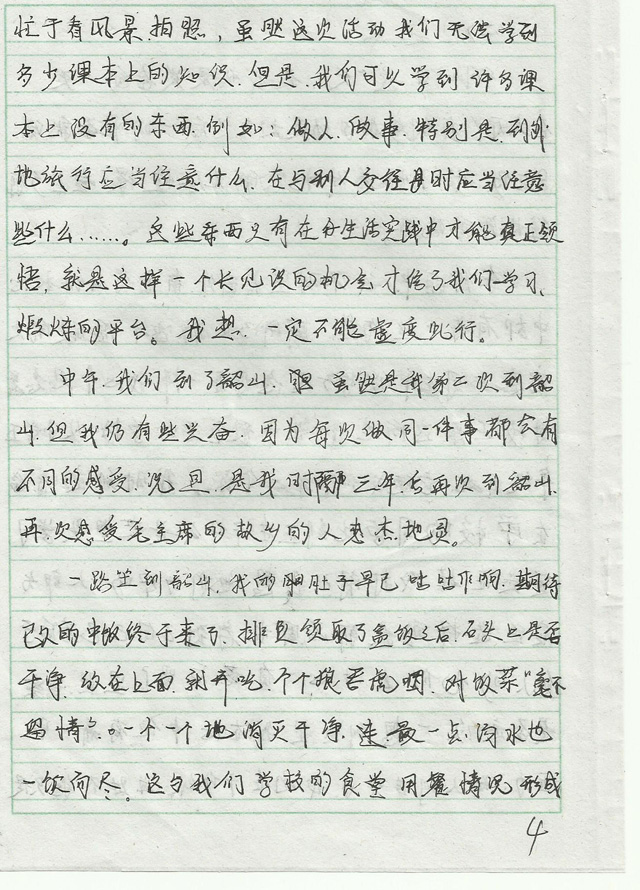 忙于看风景、拍照，虽然这次活动我们无法学到
多少课本上的知识，但是，我们可以学到许多课
本上没有的东西，例如：做人、做事，特别是，到外
地旅行应当注意什么，在与别人交往时应当注意
些什么……。这些东西只有在生活实践中才能真正领
悟，就是这样一个长见识的机会才给了我们学习、
煅炼的平台。我想，一定不能虚度此行。
中午，我们到了韶山，虽然是我第二次到韶
山，但我仍有些兴奋，因为每次做同一件事都会有
不同的感受，况且，是我时隔三年，去再次到韶山，
再次感受毛主席的故乡的人杰地灵。
一路坐到韶山，我的肚子早已咕咕作响，期待
已久的中饭终于来了，排队领取了盒饭之后，石头上是否
干净，放在上面，就开吃，个个狼吞虎咽，对饭菜“毫不
留情”，一个一个地消灭干净，连最一点汤水也
一饮而尽。这与我们学校的食堂用餐情况形成
4